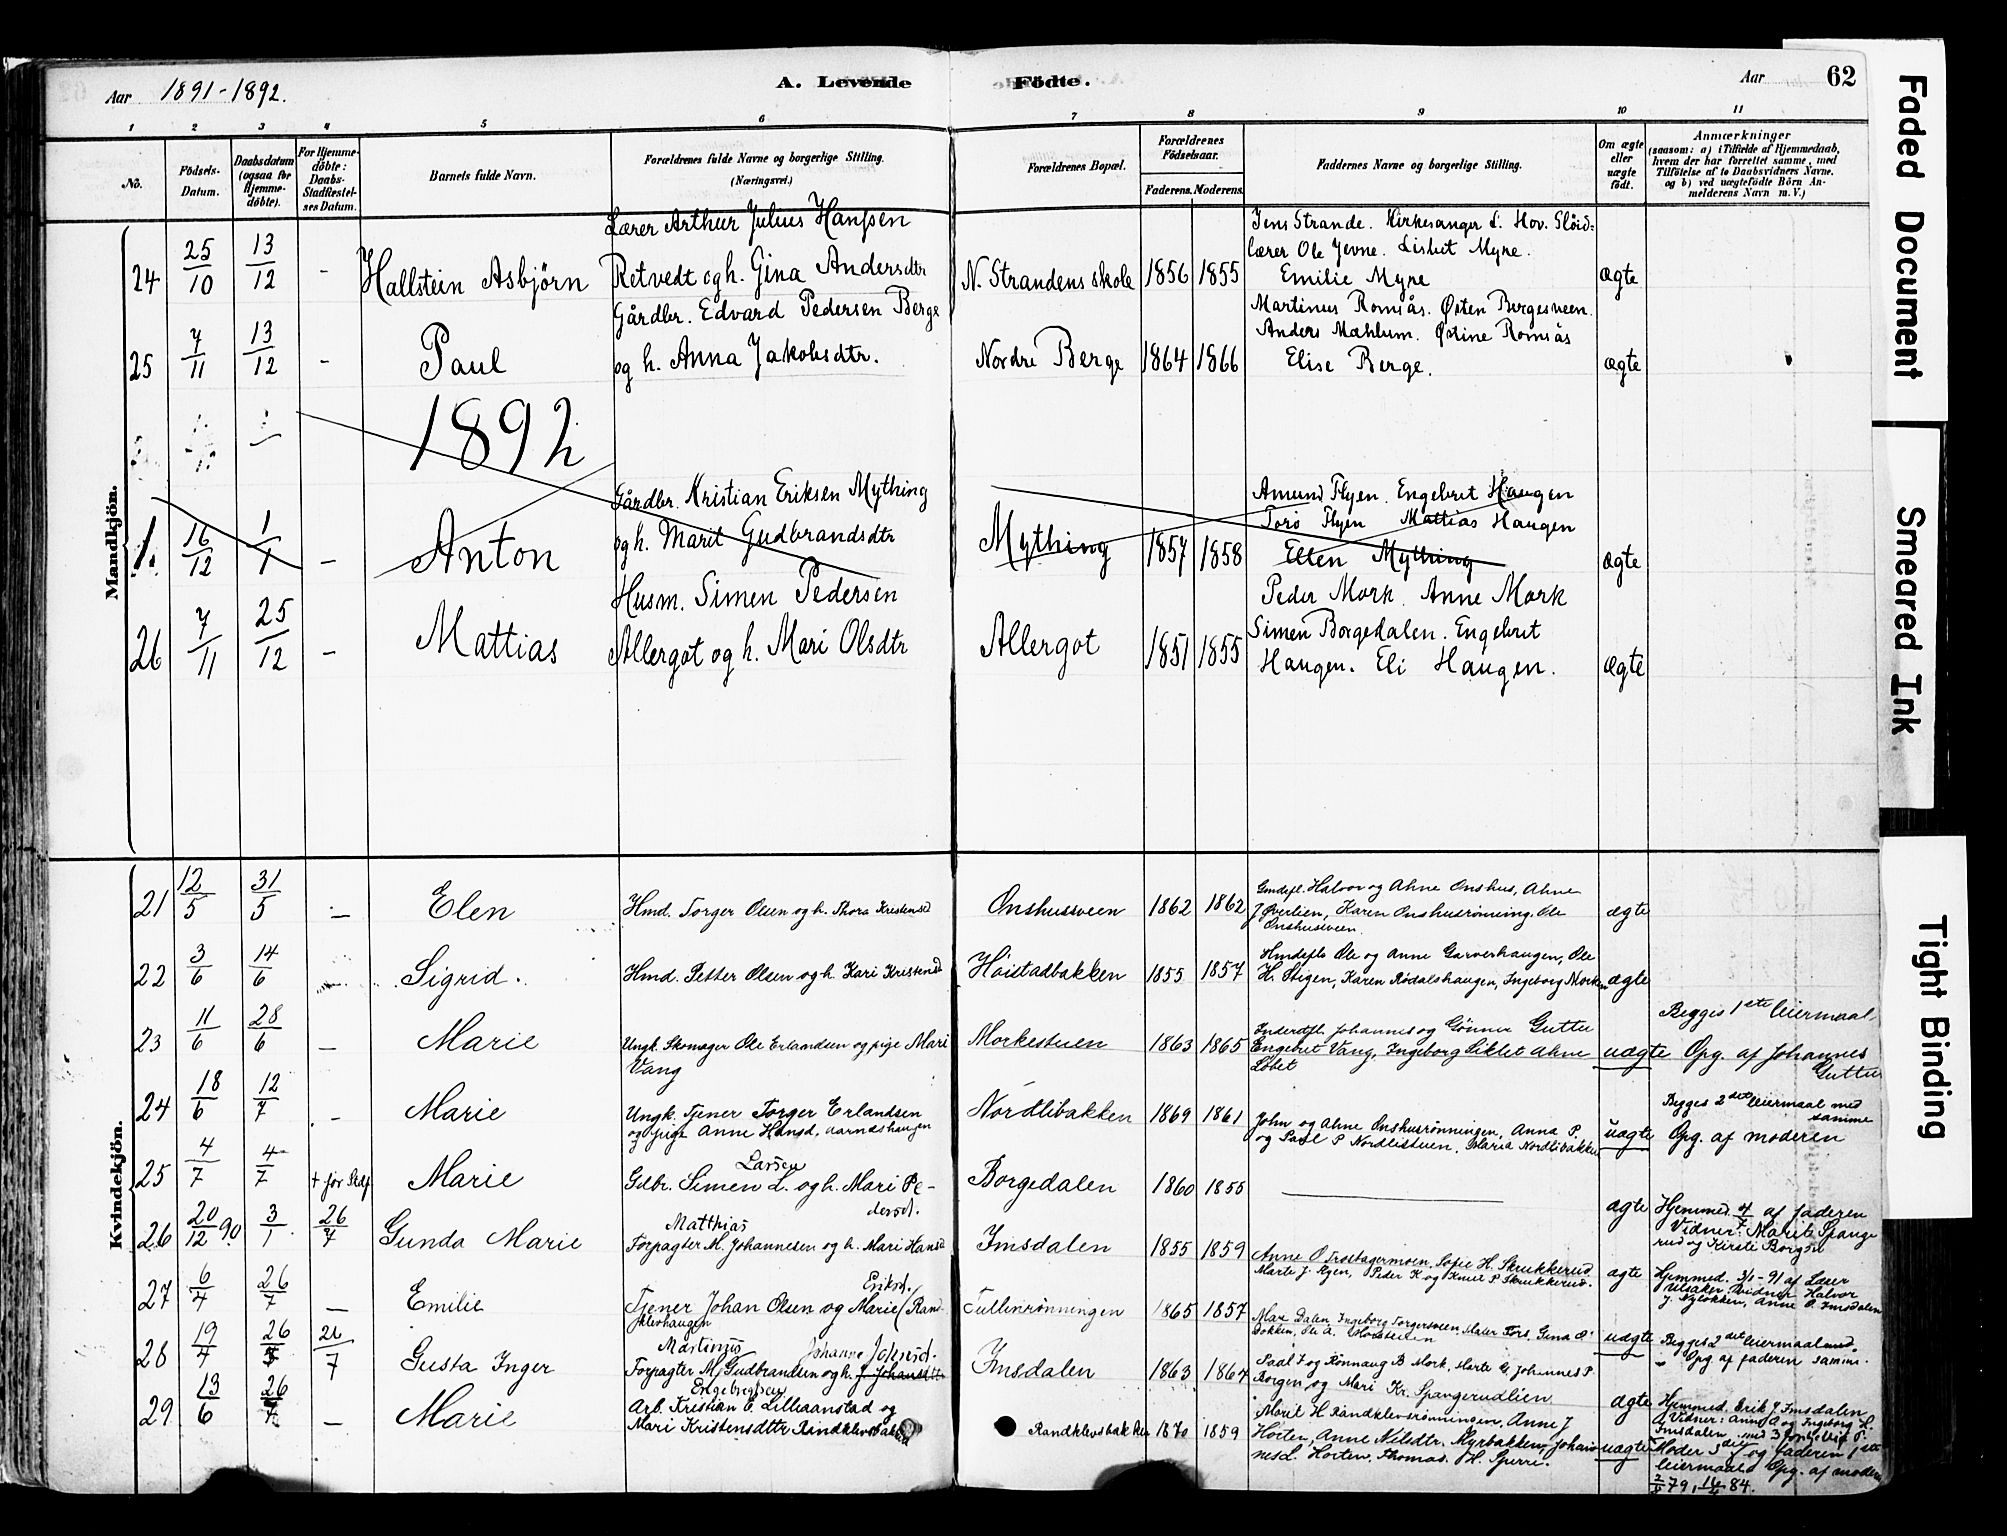 Aar 1891-1892.
A. Levende Födte.
Aar 62
1 2 3 4 5 6 7 8 9 10 11
No.
Födsels-Datum.
Daabsdatum (ogsaa for Hjemme-döbte).
For Hjemme-döbte: Daabs-Stadfæstel-ses Datum.
Barnets fulde Navn.
Forældrenes fulde Navne og borgerlige Stilling. (Næringsvei.)
Forældrenes Bopæl.
Forældrenes Födselsaar.
Faderens. Moderens.
Faddernes Navne og borgerlige Stilling.
Om ægte eller uægte födt.
Anmærkninger (saasom: a) i Tilfælde af Hjemmedaab, hvem der har forrettet samme, med Tilföielse af to Daabsvidners Navne, og b) ved uægtefödte Börn An-melderens Navn m. V.)
Mandkjön.
24 25/10 13/12 - Hallstein Asbjörn
Lærer Arthur Julius Hansen
Retvedt og h. Gina Andersdtr
N. Strandens skole 1856 1855
Jens Strande. Kirkesanger L. Hov. Slöid-
lærer Ole Jevne. Lisbet Myre.
Emilie Myre
ægte
25 7/11 13/12 - Paul
Gårdbr. Edvard Pedersen Berge
og h. Anna Jakobsdtr.
Nordre Berge 1864 1866
Martinus Romsås. Østen Bergesveen.
Anders Mæhlum. Østine Romsås
Elise Berge.
ægte
1892
1. 16/12 1/1 - Anton
Gårdbr. Kristian Eriksen Mything
og h. Marit Gudbrandsdtr
Mything 1857 1858
Amund Flyen. Engebret Haugen
Torø Flyen Mattias Haugen
Ellen Mything
Ægte
26 7/11 25/12 - Mattias
Husm. Simen Pedersen
Allergot og h. Mari Olsdtr
Allergot 1851 1855
Peder Mork. Anne Mork
Simen Borgedalen. Engebret
Haugen. Eli Haugen.
Ægte
Kvindekjön.
21 12/5 31/5 - Elen
Hmd. Torger Olsen og h. Thora Kristensd
Onshusveen 1862 1862
Gmdefl. Halvor og Ahne Onshus, Ahne
J Øverlien, Karen Onshusrönning. Ole
Onshusveen
ægte
22 3/6 14/6 Sigrid.
Hmd. Petter Olsen og h. Kari Kristensd
Höistadbakken 1855 1857
Hmdeflo Ole og Anne Garverhaugen, Ole
H. Stigen, Karen Rödalshaugen, Ingeborg Morken
ægte
23 11/6 28/6 - Marie
Ungk. Skomager Ole Erlandsen og pige Mari
Vang
Morkestuen 1863 1865
Inderdfl. Johannes og Gönner Guttu
Engebret Vang, Ingeborg Liklet Ahne
Löbet
uægte
Begges 1ste leiermaal,
Opg. af Johannes
Guttu
24 18/6 12/7 - Marie
Ungk. Tjener Torger Erlandsen
og pige Anne Hansd. Aarneshaugen
Nordlibakken 1869 1861
John og Ahne Onshusrönningen, Anna P.
og Paul P Nordlistuen, Maria Nordlibakken
uægte
Begges 2det leiermaal med
samme
Opg. af moderen
25 4/7 4/7 + før Stdf Marie
Larsen
Gdbr. Simen L. og h. Mari Pe-
dersd.
Borgedalen 1860 1855
ægte
Hjemmed. 4/7 af faderen
Vidner: Marite Spange
rud og Kirsti Borgen
26 20/12 90 3/1 26/7 Gunda Marie
Matthias
Forpagter M. Johannesen og h. Mari Hansd
Imsdalen 1855 1859
Anne O Trostagermoen, Sofie H. Skrukkerud
Marte J. Flyen, Peder K og Knut P Skrukkerud.
ægte
Hjemmed. 3/1-91 af Læser
Ulsaker. Vidner Halvor
J. Nyløkken, Anne O. Imsdalen
27 6/4 26/7 - Emilie
Eriksd.
Tjener Johan Olsen og Marie (Rand-
klevhaugen
Tullenrönningen 1865 1857
uægte
Begges 2det leiermaal med
Opg af faderen samme.
28 19/4 26/7 26/7 Gusta Inger
Martinus Johanne Johsesd.
Forpagter M. Gudbrandsen og h. J. Johansdtr
Imsdalen 1863 1864
Paal J og Rönnaug B Mork, Marte G, Johannes P
Borgen og Mari Kr. Spangerudlien
ægte
Hjemmed. Erik J. Imsdalen
Vidner: Anne O og Ingeborg L.
Imsdalen
29 13/6 26/7 - Marie
Engebretsen
Arb. Kristian E. Lilleaanstad og
Mari Kristensdttr Randklevsbakken
Randklevsbakken 1870 1859
Marit H Randklevsrönningen, Anne J
Horten, Anne Nilsdtr. Myrbakken, Johan-
nesd. Horten, Thomas. H. Sperri.
uægte
Moder 3die og faderen 1ste
leiermaal Opg. af moderen
79, 84.
Faded Document
Smeared Ink
Tight Binding